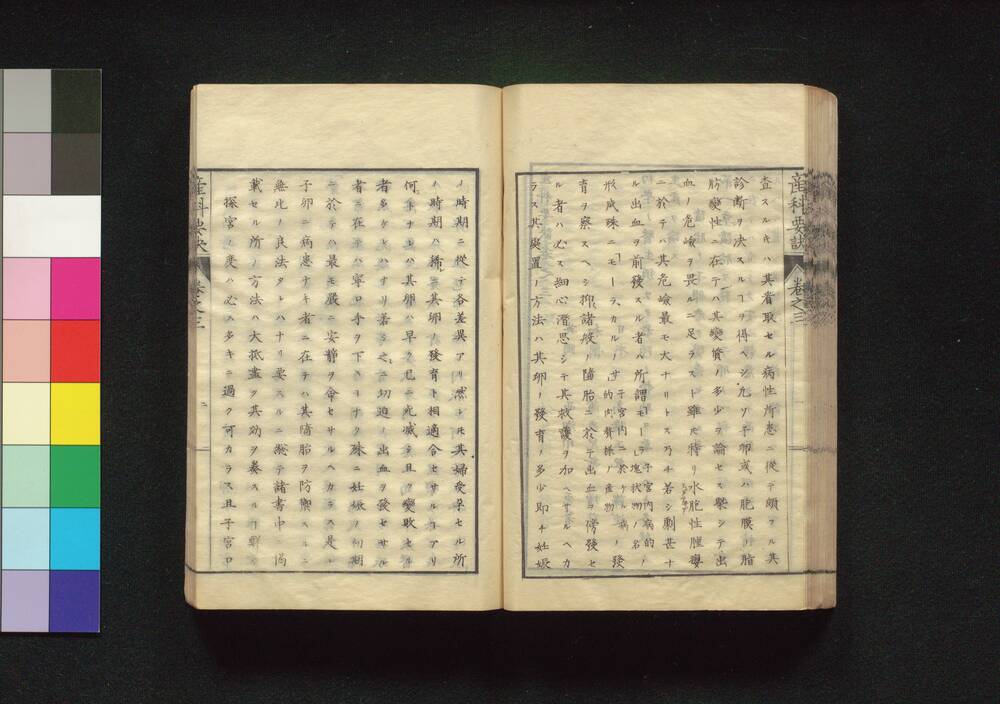 産科要訣 卷之三
査スルキハ其着取セル病性所患ニ從テ頗フル其
診斷ヲ决スルヿヲ得ベシ凡ソ子卵或ハ胞膜ノ脂
肪變性ニ在テハ其變質ノ多少ヲ論セス擧シテ出
血ノ危嶮ヲ畏ルニ足ラスト雖モ特リ水胞性腫
ニ於テハ其危嶮最モ大ナリトス乃チ若シ劇甚ナ
ル出血ヲ前後スル者ハ所謂モーラ塊狀物ノ名子宮内病的ノ
形成殊ニモーラ、カルノサ子宮内ニ於ケル病的肉贅様ノ産物ノ發
育ヲ察スヘシ抑諸般ノ墮胎ニ於テ出血ヲ傍發セ
ル者ハ必ス細心潛思シテ其救護ヲ加ヘサルヘカ
ラス其處置ノ方法ハ其卵ノ發育ノ多少即チ妊娠
ノ時期ニ從テ各差異アリ然レモ其婦受孕セル所
ノ時期ハ稀ニ其卵ノ發育ト相適合セサルヿアリ
何トナレハ其卵ハ早ク已ニ死滅シ且ク變敗セル
者多ケレハナリ若シ之ニ切迫ノ出血ヲ發セサル
者ニ在テハ寧ロ手ヲ下スヿナク殊ニ妊娠ノ初期
ニ於テハ最モ嚴ニ安靜ヲ命セサルヘカラス是レ
子卵ニ病患ナキ者ニ在テハ其墮胎ヲ防禦スルニ
無比ノ良法タレハナリ要スルニ總テ諸書中ニ掲
載セル所ノ方法ハ大抵盡ク其効ヲ奏スルヿ
探宮ノ度ハ必ス多キニ過ク可カラス且子宮口
産科要訣 卷之三